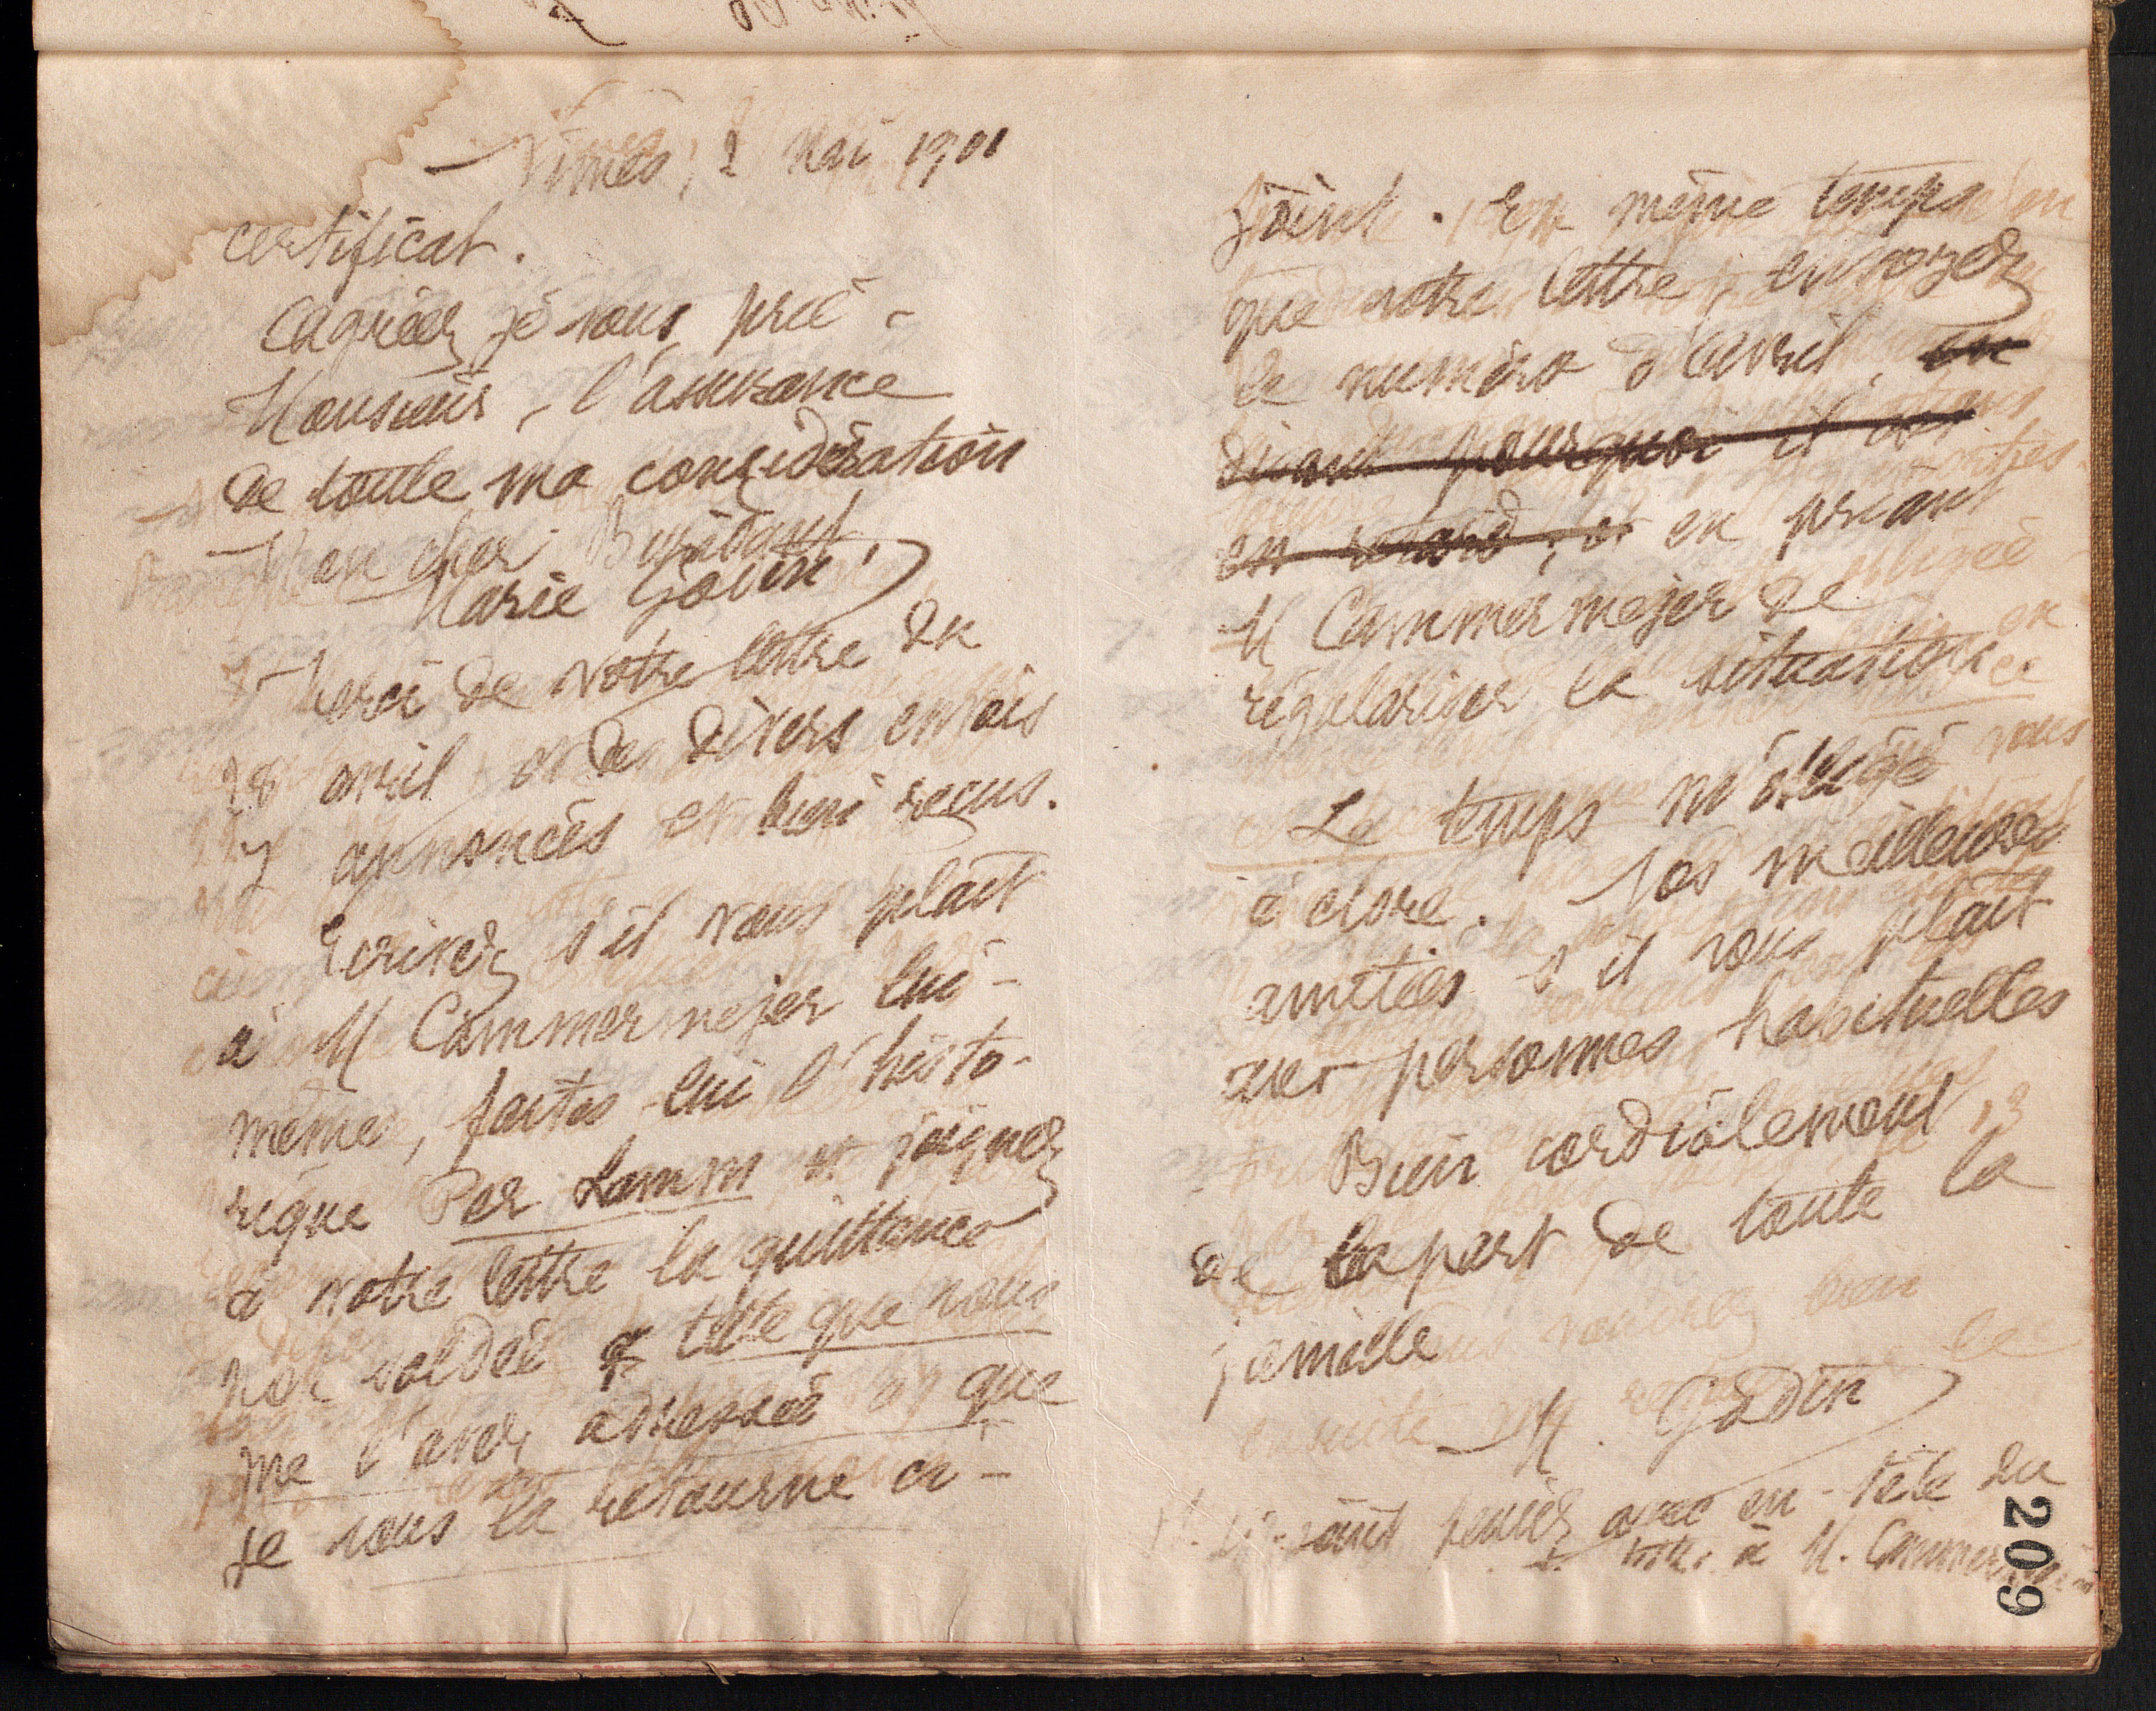 Nimes, 2 Mai 1901
certificat.
Cagréez je vous prie -
Monsieur, l'assurance
de toute ma considération
Mon cher Buridant,
Marie Godin
Merci de votre lettre du
28 avril et des divers envois
y annoncés et bien reçus.
Ecrivez s'il vous plait
à M Cammermeyer lui-
même, faites-lui l'histo-
rique Per Lamm et joignez
à votre lettre la quittance
non soldée q telle que vous
me l'avez adressée et que
je vous la retourne ci-
joint. En même temps
que votre lettre, envoyez
le numéro d'avril, en
disant pourquoi il est
en retard, et en priant
M Cammermeyer de
régulariser la situation.
Le temps m'oblige
à clore. Nos meilleures
amitiés s'il vous plait
aux personnes habituelles
Bien cordialement
de la part de toute la
famille
M. Godin
papier avec en-tête du
à M. Cammermeyer
209